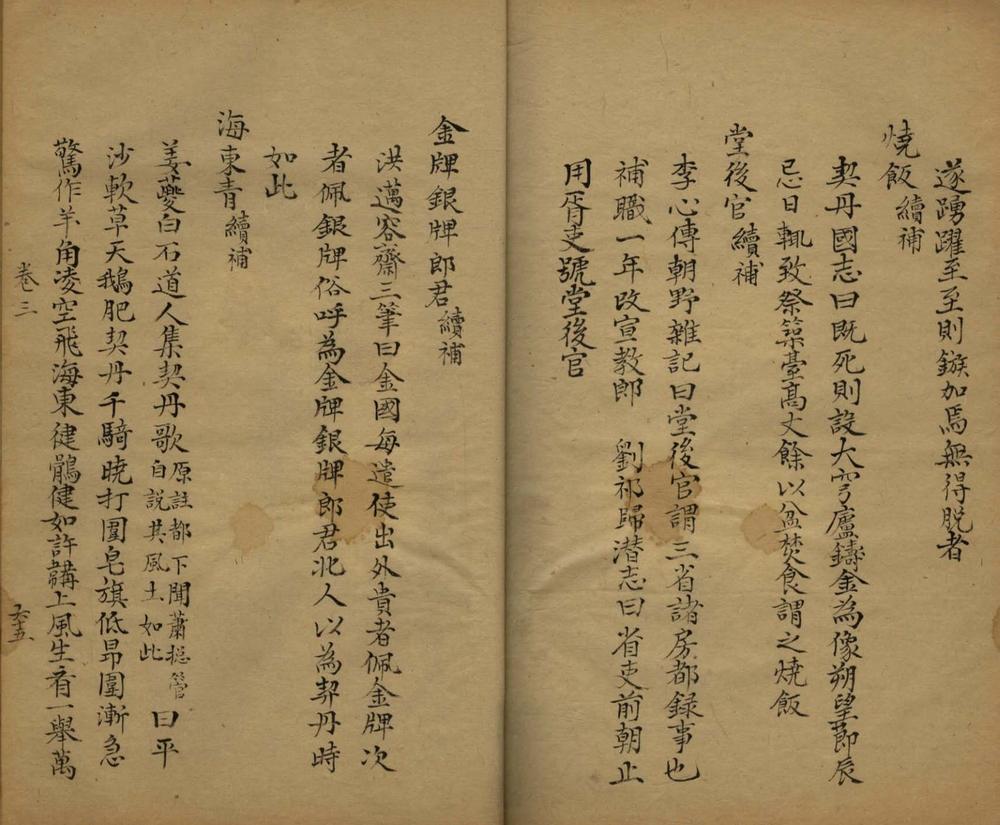 遂踴躍至至則鏃加焉無得脫者
燒飯續補
契丹國志曰既死則設大穹廬鑄金為像朔望節辰
忌日輒致祭築臺高丈餘以盆焚食謂之燒飯
堂後官續補
李心傳朝野雜記曰堂後官謂三省諸房都錄事也
補職一年改宣教郎 劉祁歸潛志曰省吏前朝止
用胥吏號堂後官
金牌銀牌郎君續補
洪邁容齋三筆曰金國每遣使出外貴者佩金牌次
者佩銀牌俗呼為金牌銀牌郎君北人以為契丹時
如此
海東青續補
姜夔白石道人集契丹歌原註都下聞蕭總管自說其風土如此曰平
沙軟草天鵝肥契丹千騎曉打圍皂旗低昂圍漸急
驚作羊角凌空飛海東健鶻健如許韝上風生看一舉萬
卷三